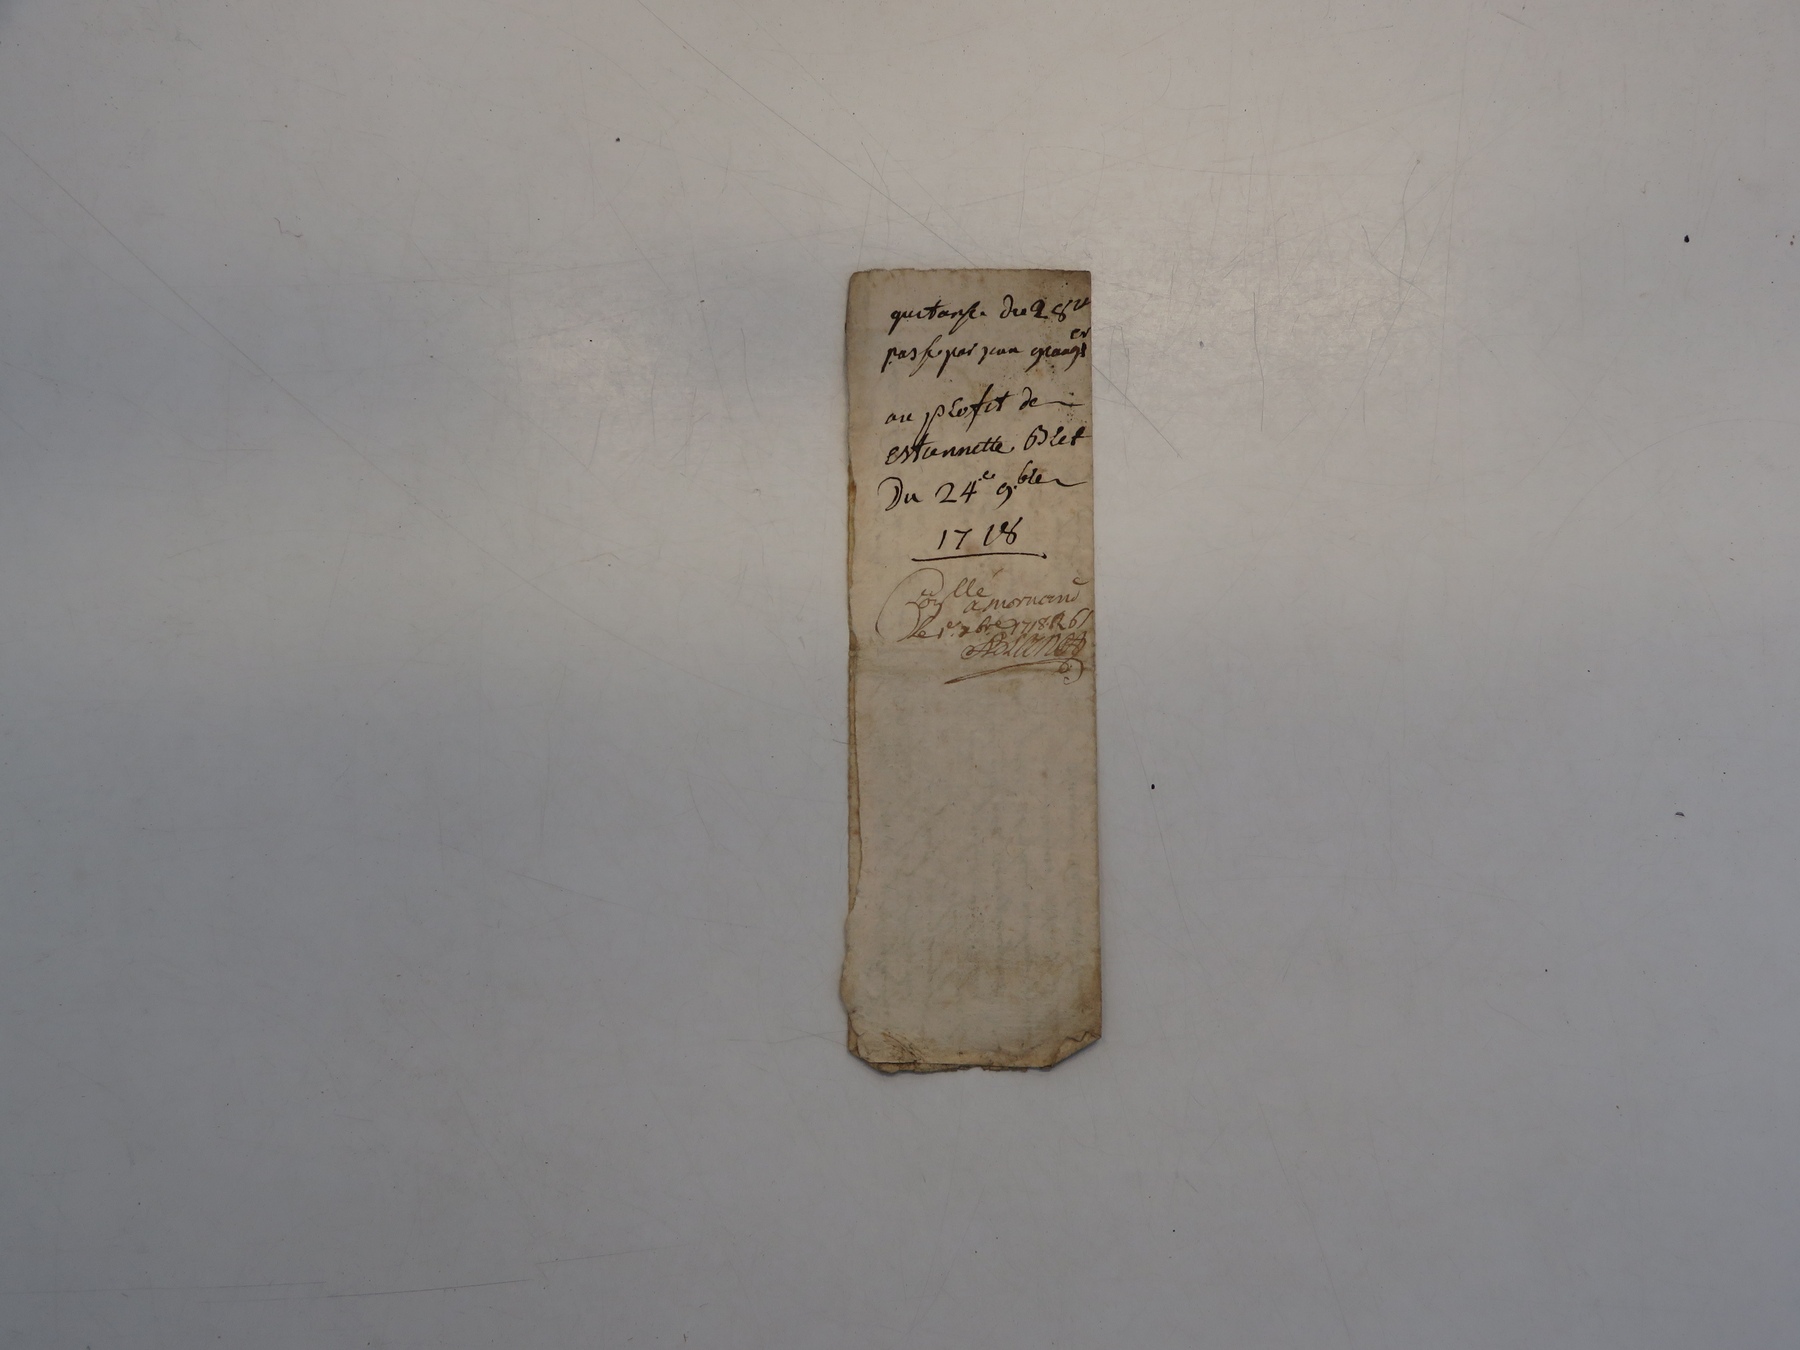 quitanse de 28ᵗᵗ
passe par jean granger
au profit de
estiennette Blet
Du 24ᵉ 9bre
1718
Collé
a mornand
le 1er xbre 1718 R 6s